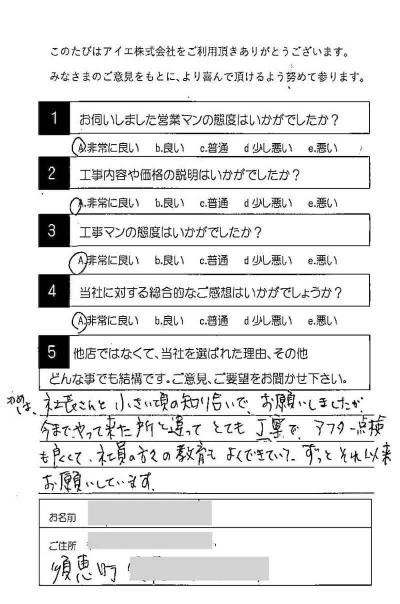 このたびはアイエ株式会社をご利用頂きありがとうございます。
みなさまのご意見をもとに、より喜んで頂けるよう努めて参ります。
1 お伺いしました営業マンの態度はいかがでしたか?
A.非常に良い b.良い c.普通 d 少し悪い e.悪い
2 工事内容や価格の説明はいかがでしたか?
A.非常に良い b.良い c.普通 d 少し悪い e.悪い
3 工事マンの態度はいかがでしたか?
A.非常に良い b.良い c.普通 d 少し悪い e.悪い
4 当社に対する総合的なご感想はいかがでしょうか?
A.非常に良い b.良い c.普通 d 少し悪い e.悪い
5 他店ではなくて、当社を選ばれた理由、その他
どんな事でも結構です。ご意見、ご要望をお聞かせ下さい。
社長さんと小さい頃の知り合いで、お願いしましたが
今までやって来た所と違って とても 丁寧で、アフター点検
も良くて、社員の方々の教育も よくできていて、ずっと それ以来
お願いしています。
お名前
ご住所
須恵町